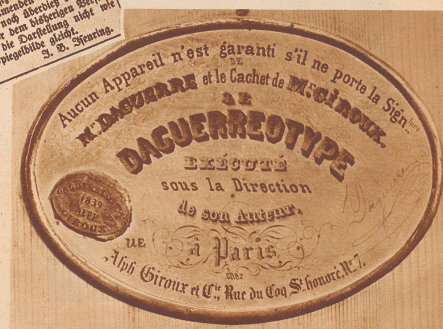 noch überdieß
dem bisherigen
die Darstellung nicht wie
Spiegelbilde gleicht.
J. B. Isenring.
Aucun Appareil n'est garanti s'il ne porte la Sign.ture
DE
Mr. DAGUERRE et le Cachet de Mr. GIROUX.
LE
DAGUERREOTYPE
EXÉCUTÉ
sous la Direction
de son Auteur.
à Paris,
chez
Alph Giroux et Cie, Rue du Coq St. honoré, No. 7.
1839
GIROUX
Daguerre